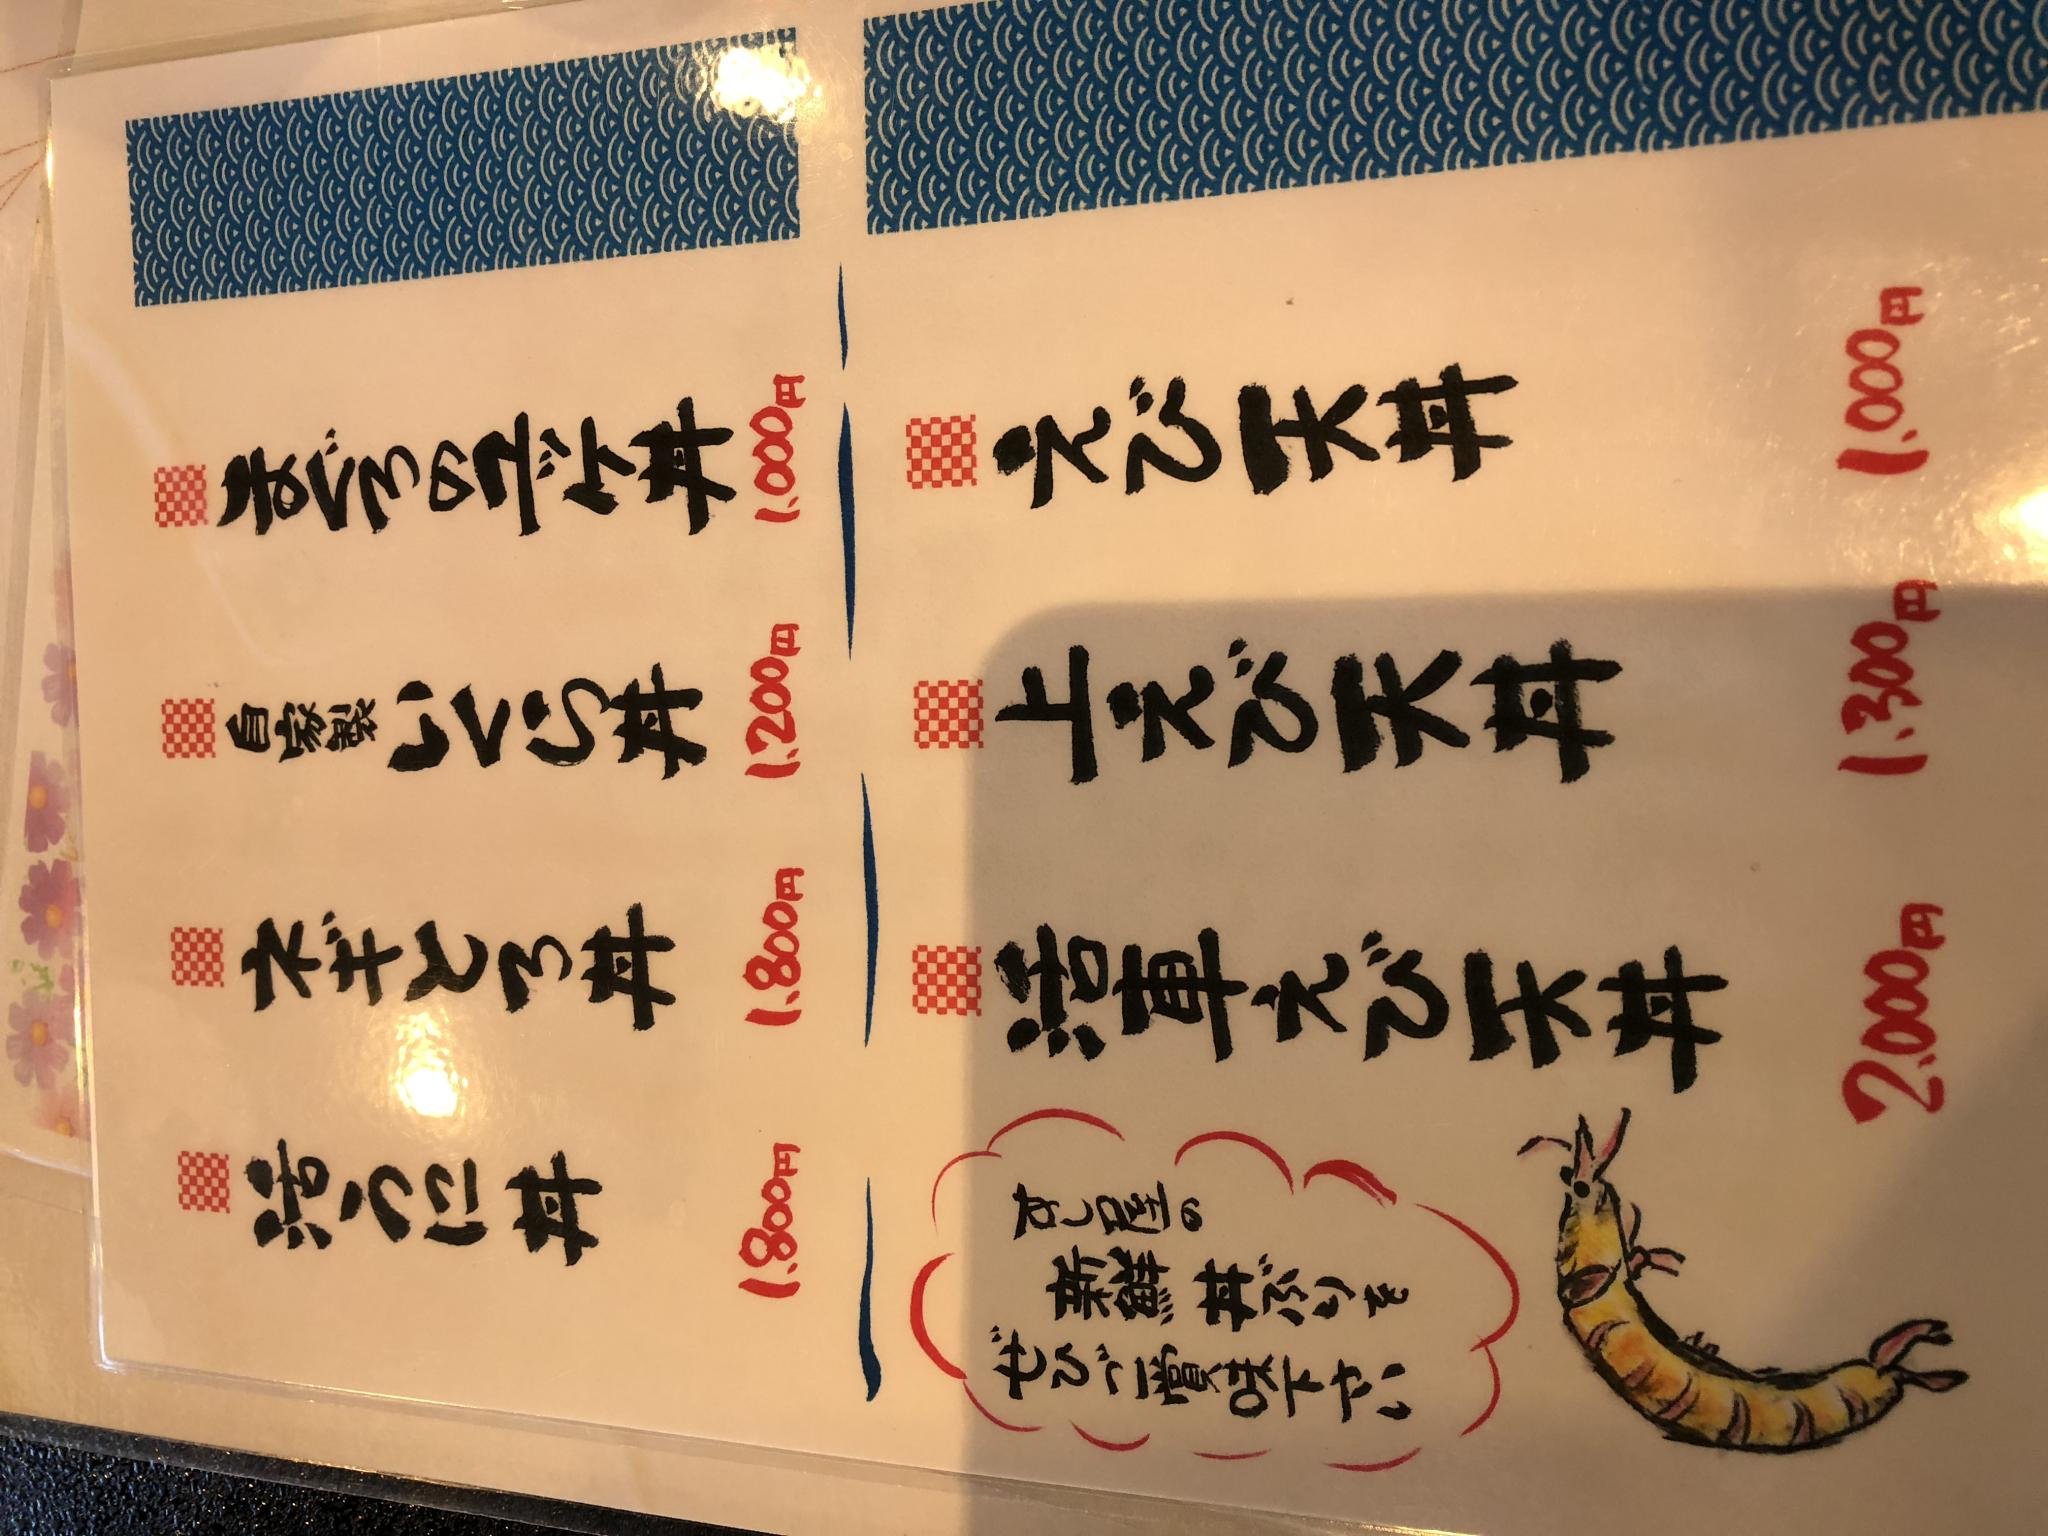 まぐろのヅケ丼 1.000円
自家製 いくら丼 1.200円
ネギとろ丼 1.800円
活うに丼 1.800円
えび天丼 1.000円
上えび天丼 1.300円
活車えび天丼 2.000円
すし屋の
新鮮丼ぶりを
ぜひご賞味下さい